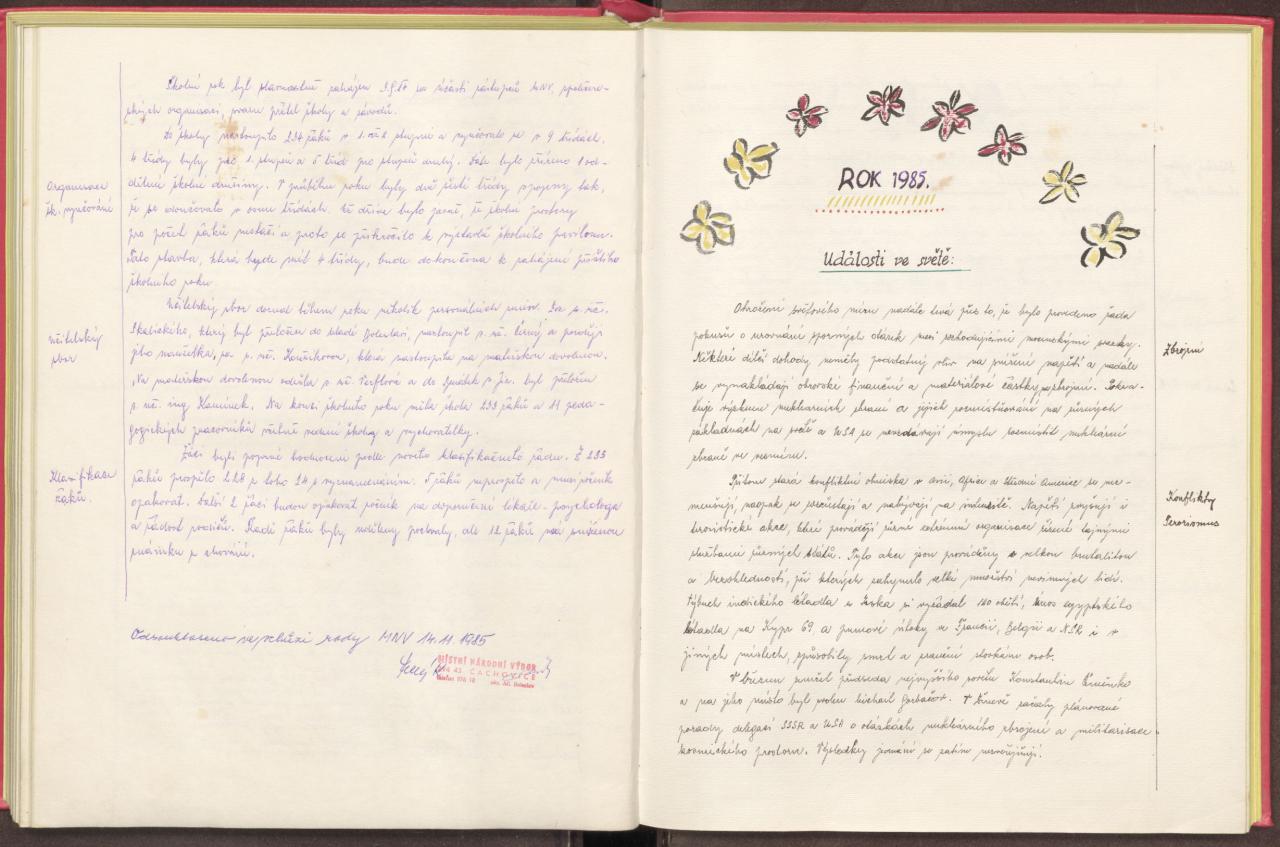 Školní rok byl slavnostně zahájen 3.9.84 za účasti zástupců MNV, společen-
ských organisací, svazu přátel školy a závodů.
Do školy nastoupilo 234 žáků v 1. až 8. stupni a vyučovalo se v 9 třídách.
4 třídy byly pro 1. stupeň a 5 tříd pro stupeň druhý. Dále bylo zřízeno 1 od-
dělení školní družiny. V průběhu roku byly dvě šesté třídy spojeny tak,
Organisace
že se doučovalo v osmi třídách. Již dříve bylo jasné, že školní prostory
šk. vyučování
pro počet žáků nestačí a proto se přikročilo k výstavbě školního pavilonu.
Tato stavba, která bude mít 4 třídy, bude dokončena k zahájení příštího
školního roku.
Učitelský sbor doznal během roku několik personálních změn. Za s. uč.
Učitelský
sbor
Skalického, který byl přeložen do Mladé Boleslavi, nastoupil s. uč. Černý a později
jeho manželka, za s. uč. která nastoupila na mateřskou dovolenou.
Na mateřskou dovolenou odešla s. uč. a do byl přeložen
s. uč. ing. Kamínek. Na konci školního roku měla škola 233 žáků a 11 peda-
gogických pracovníků včetně vedení školy a vychovatelky.
Klasifikace
žáků.
Žáci byli poprvé hodnoceni podle nového klasifikačního řádu. Z 233
žáků prospělo 228 z toho 24 s vyznamenáním. 5 žáků neprospělo a musí ročník
opakovat. Další 2 žáci budou opakovat ročník na doporučení lékaře - psychologa
a žádost rodičů. Řadě žáků byly uděleny pochvaly, ale 12 žáků má sníženou
známku z chování.
Odsouhlaseno na schůzi rady MNV 14.11.1985
MÍSTNÍ NÁRODNÍ VÝBOR
294 43 ČACHOVICE
okr. Ml. Boleslav
ROK 1985.
Události ve světě:
Ohrožení světového míru nadále trvá přes to, že bylo provedeno řada
pokusů o urovnání sporných otázek mezi rozhodujícími mocenskými svazky.
Zbrojení
Některé dílčí dohody neměly podstatný vliv na snížení napětí a nadále
se vynakládají obrovské finanční a materiálové částky na zbrojení. Pokra-
čuje výzkum nukleárních zbraní a jejich rozmísťování na různých
základnách na světě a USA se nevzdávají úmyslu rozmístit nukleární
zbraně ve vesmíru.
Přitom stará konfliktní ohniska v Asii, Africe a Střední Americe se ne-
Konflikty
zmenšují, naopak se rozrůstají a nabývají na intenzitě. Napětí zvyšují i
Terorismus
teroristické akce, které provádějí různé extrémní organisace řízené tajnými
službami různých států. Tyto akce jsou prováděny s velkou brutalitou
a bezohledností, při kterých zahynulo velké množství nevinných lidí.
Výbuch indického letadla u Irska si vyžádal obětí, únos egyptského
letadla na Kypr 69, a pumové útoky ve Francii, Belgii a NSR i v
jiných místech, způsobily smrt a zranění stovkám osob.
V březnu zemřel předseda nejvyššího sovětu Konstantin Černěnko
a na jeho místo byl zvolen Michail Gorbačov. V Ženevě začaly plánované
porady delegací SSSR a USA o otázkách nukleárního zbrojení a militarisace
kosmického prostoru. Výsledky jednání se zatím nezveřejňují.